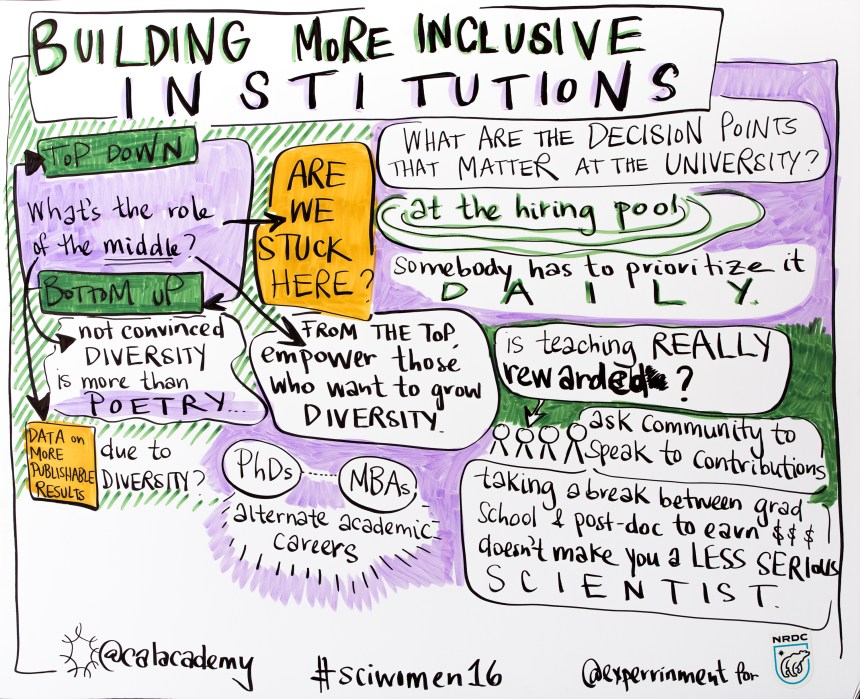 BUILDING MORE INCLUSIVE
INSTITUTIONS
TOP DOWN
What's the role
of the middle?
BOTTOM UP
ARE
WE
STUCK
HERE?
WHAT ARE THE DECISION POINTS
THAT MATTER AT THE UNIVERSITY?
at the hiring pool
Somebody has to prioritize it
DAILY.
not convinced
DIVERSITY
is more than
POETRY...
FROM THE TOP,
empower those
who want to grow
DIVERSITY.
is teaching REALLY
rewarded?
ask community to
speak to contributions
DATA on
MORE
PUBLISHABLE
RESULTS
due to
DIVERSITY?
PhDs
MBAs
alternate academic
careers
taking a break between grad
School & post-doc to earn $$$
doesn't make you a LESS SERIOUS
SCIENTIST.
@calacademy
#sciwomen16
@experrinment for
NRDC